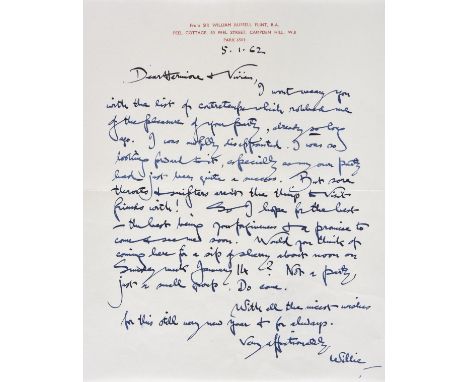 From SIR WILLIAM RUSSELL FLINT, R.A.
PEEL COTTAGE 80 PEEL STREET, CAMPDEN HILL, W.8
PARK
5.1.62
Dear Hermione & Vivien,
I wont weary you
with the list of contretemps which robbed me
of the pleasures of your party, already so long
ago. I was awfully disappointed. I was so
looking forward to it, especially as my own party
had just been quite a success. But sore
throats & snifters arent the thing to visit
friends with! So I hope for the best
- the best being your forgiveness & a promise to
come & see me soon. Would you think of
coming here for a sip of sherry about noon on
Sunday next January 14 ? Not a party,
just a small group. Do come.
With all the nicest wishes
for this still very new year & for always.
Very affectionately,
Willie